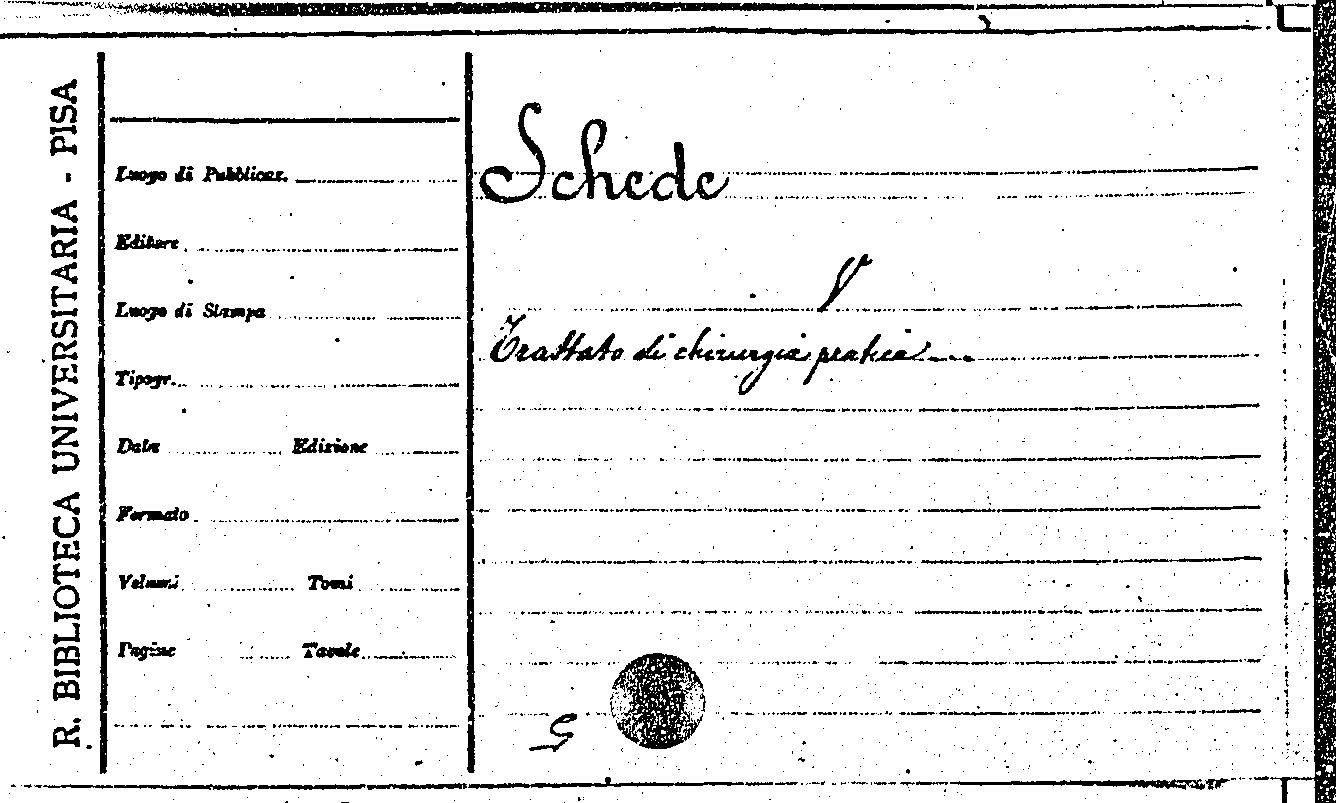 R. BIBLIOTECA UNIVERSITARIA - PISA
Luogo di Pubblicaz.
Editore
Luogo di Stampa
Tipogr.
Data Edizione
Formato
Volumi Tomi
Pagine Tavole
Schede
V
Trattato di chirurgia pratica